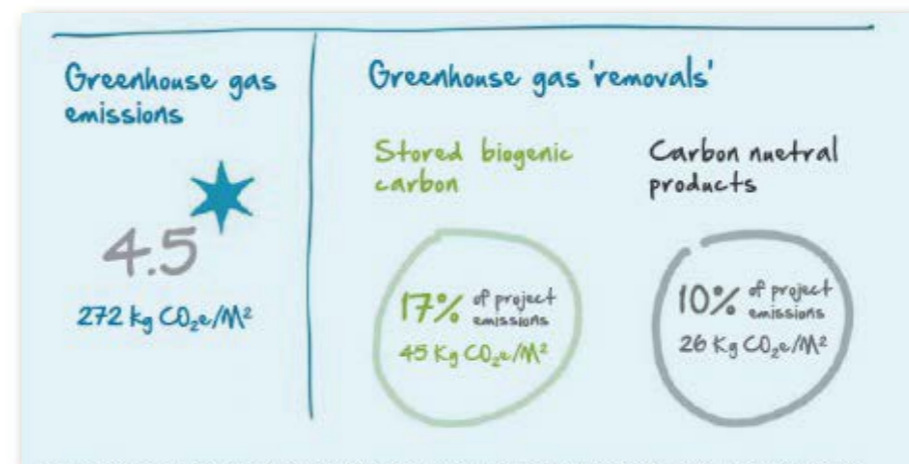 Greenhouse gas
emissions
4.5
272 kg CO₂e/M²
Greenhouse gas 'removals'
Stored biogenic
carbon
17% of project
emissions
45 Kg CO₂e/M²
Carbon nuetral
products
10% of project
emissions
26 Kg CO₂e/M²